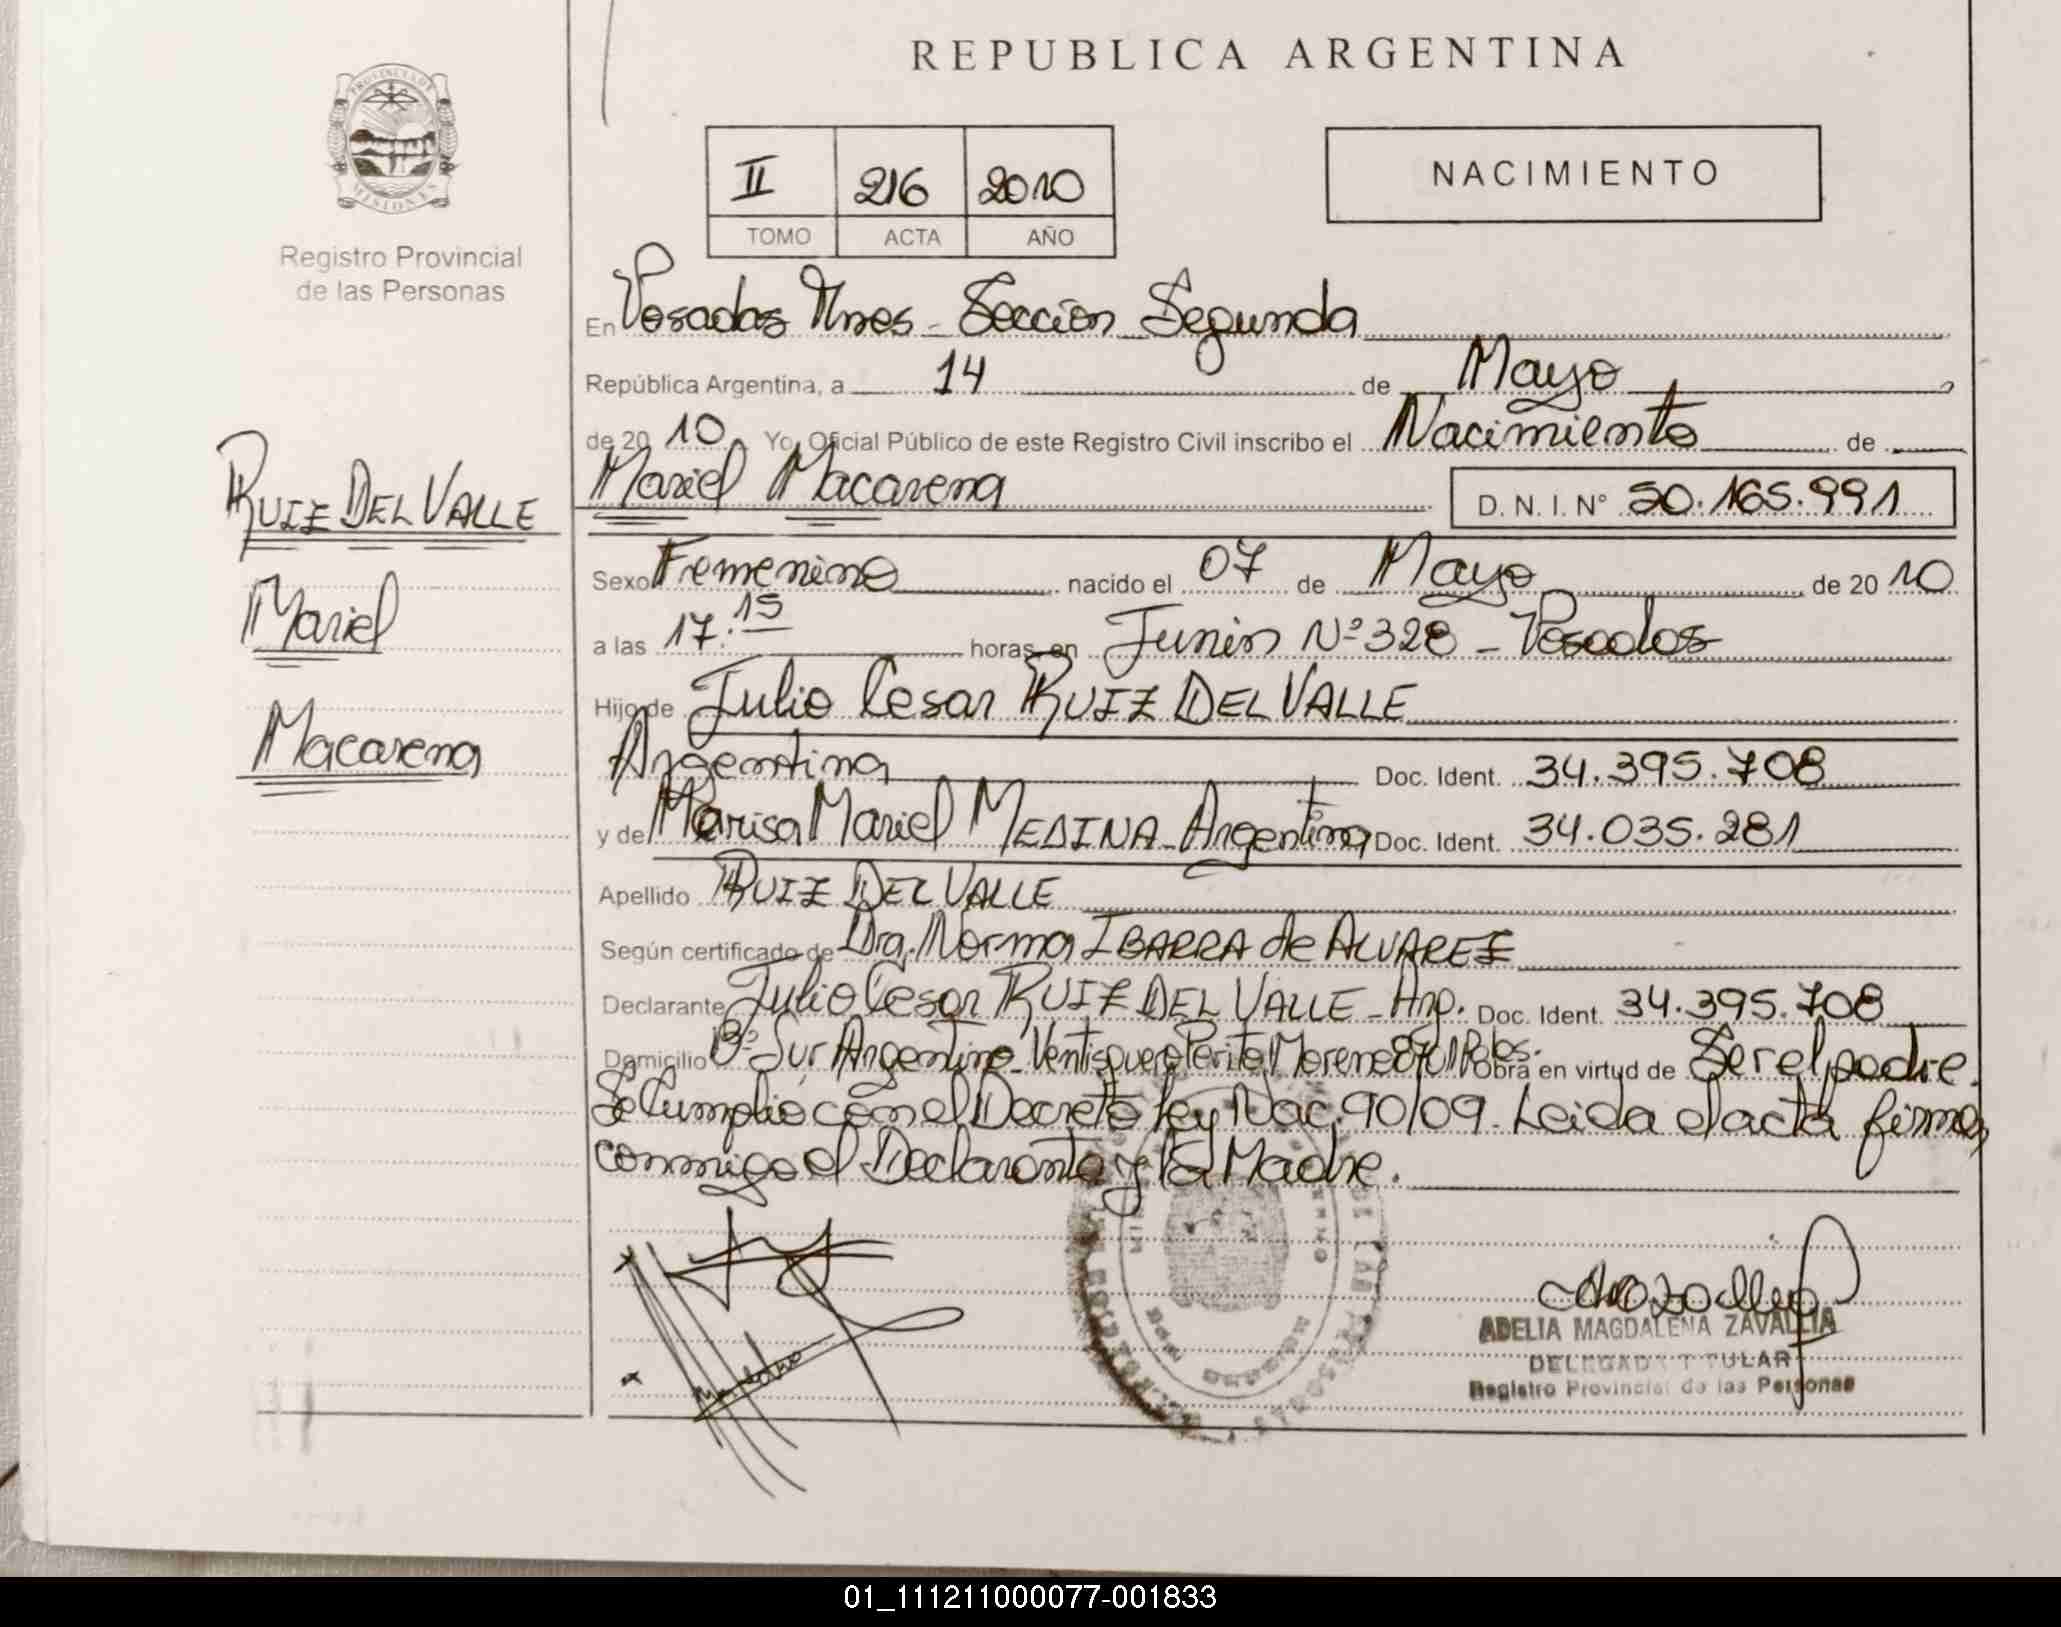 REPUBLICA ARGENTINA
PROVINCIA DE MISIONES
Registro Provincial
de las Personas
II 216 2010
TOMO ACTA AÑO
NACIMIENTO
En Posadas Mnes - Sección Segunda
República Argentina, a 14 de Mayo
de 2010. Yo, Oficial Público de este Registro Civil inscribo el Nacimiento de
Mariel Macarena D.N.I. N° 50.165.991
RUIZ DEL VALLE
Mariel
Macarena
Sexo Femenino nacido el 07 de Mayo de 2010
a las 17:15 horas, en Junin Nº 328 - Posadas
Hijo de Julio Cesar RUIZ DEL VALLE
Argentina Doc. Ident. 34.395.708
y de Marisa Mariel MEDINA - Argentina Doc. Ident. 34.035.281
Apellido RUIZ DEL VALLE
Según certificado de Dra. Norma IBARRA de ALVAREZ
Declarante Julio Cesar RUIZ DEL VALLE - Arg. Doc. Ident. 34.395.708
Domicilio Bº Sur Argentino - Ventisquero Perito Moreno Obra en virtud de Ser el padre.
Se Cumplió con el Decreto Ley Nac. 90/09. Leida el acta firma,
conmigo el Declarante y la Madre.
ADELIA MAGDALENA ZAVALLIA
DELEGADA TITULAR
Registro Provincial de las Personas
01_111211000077-001833